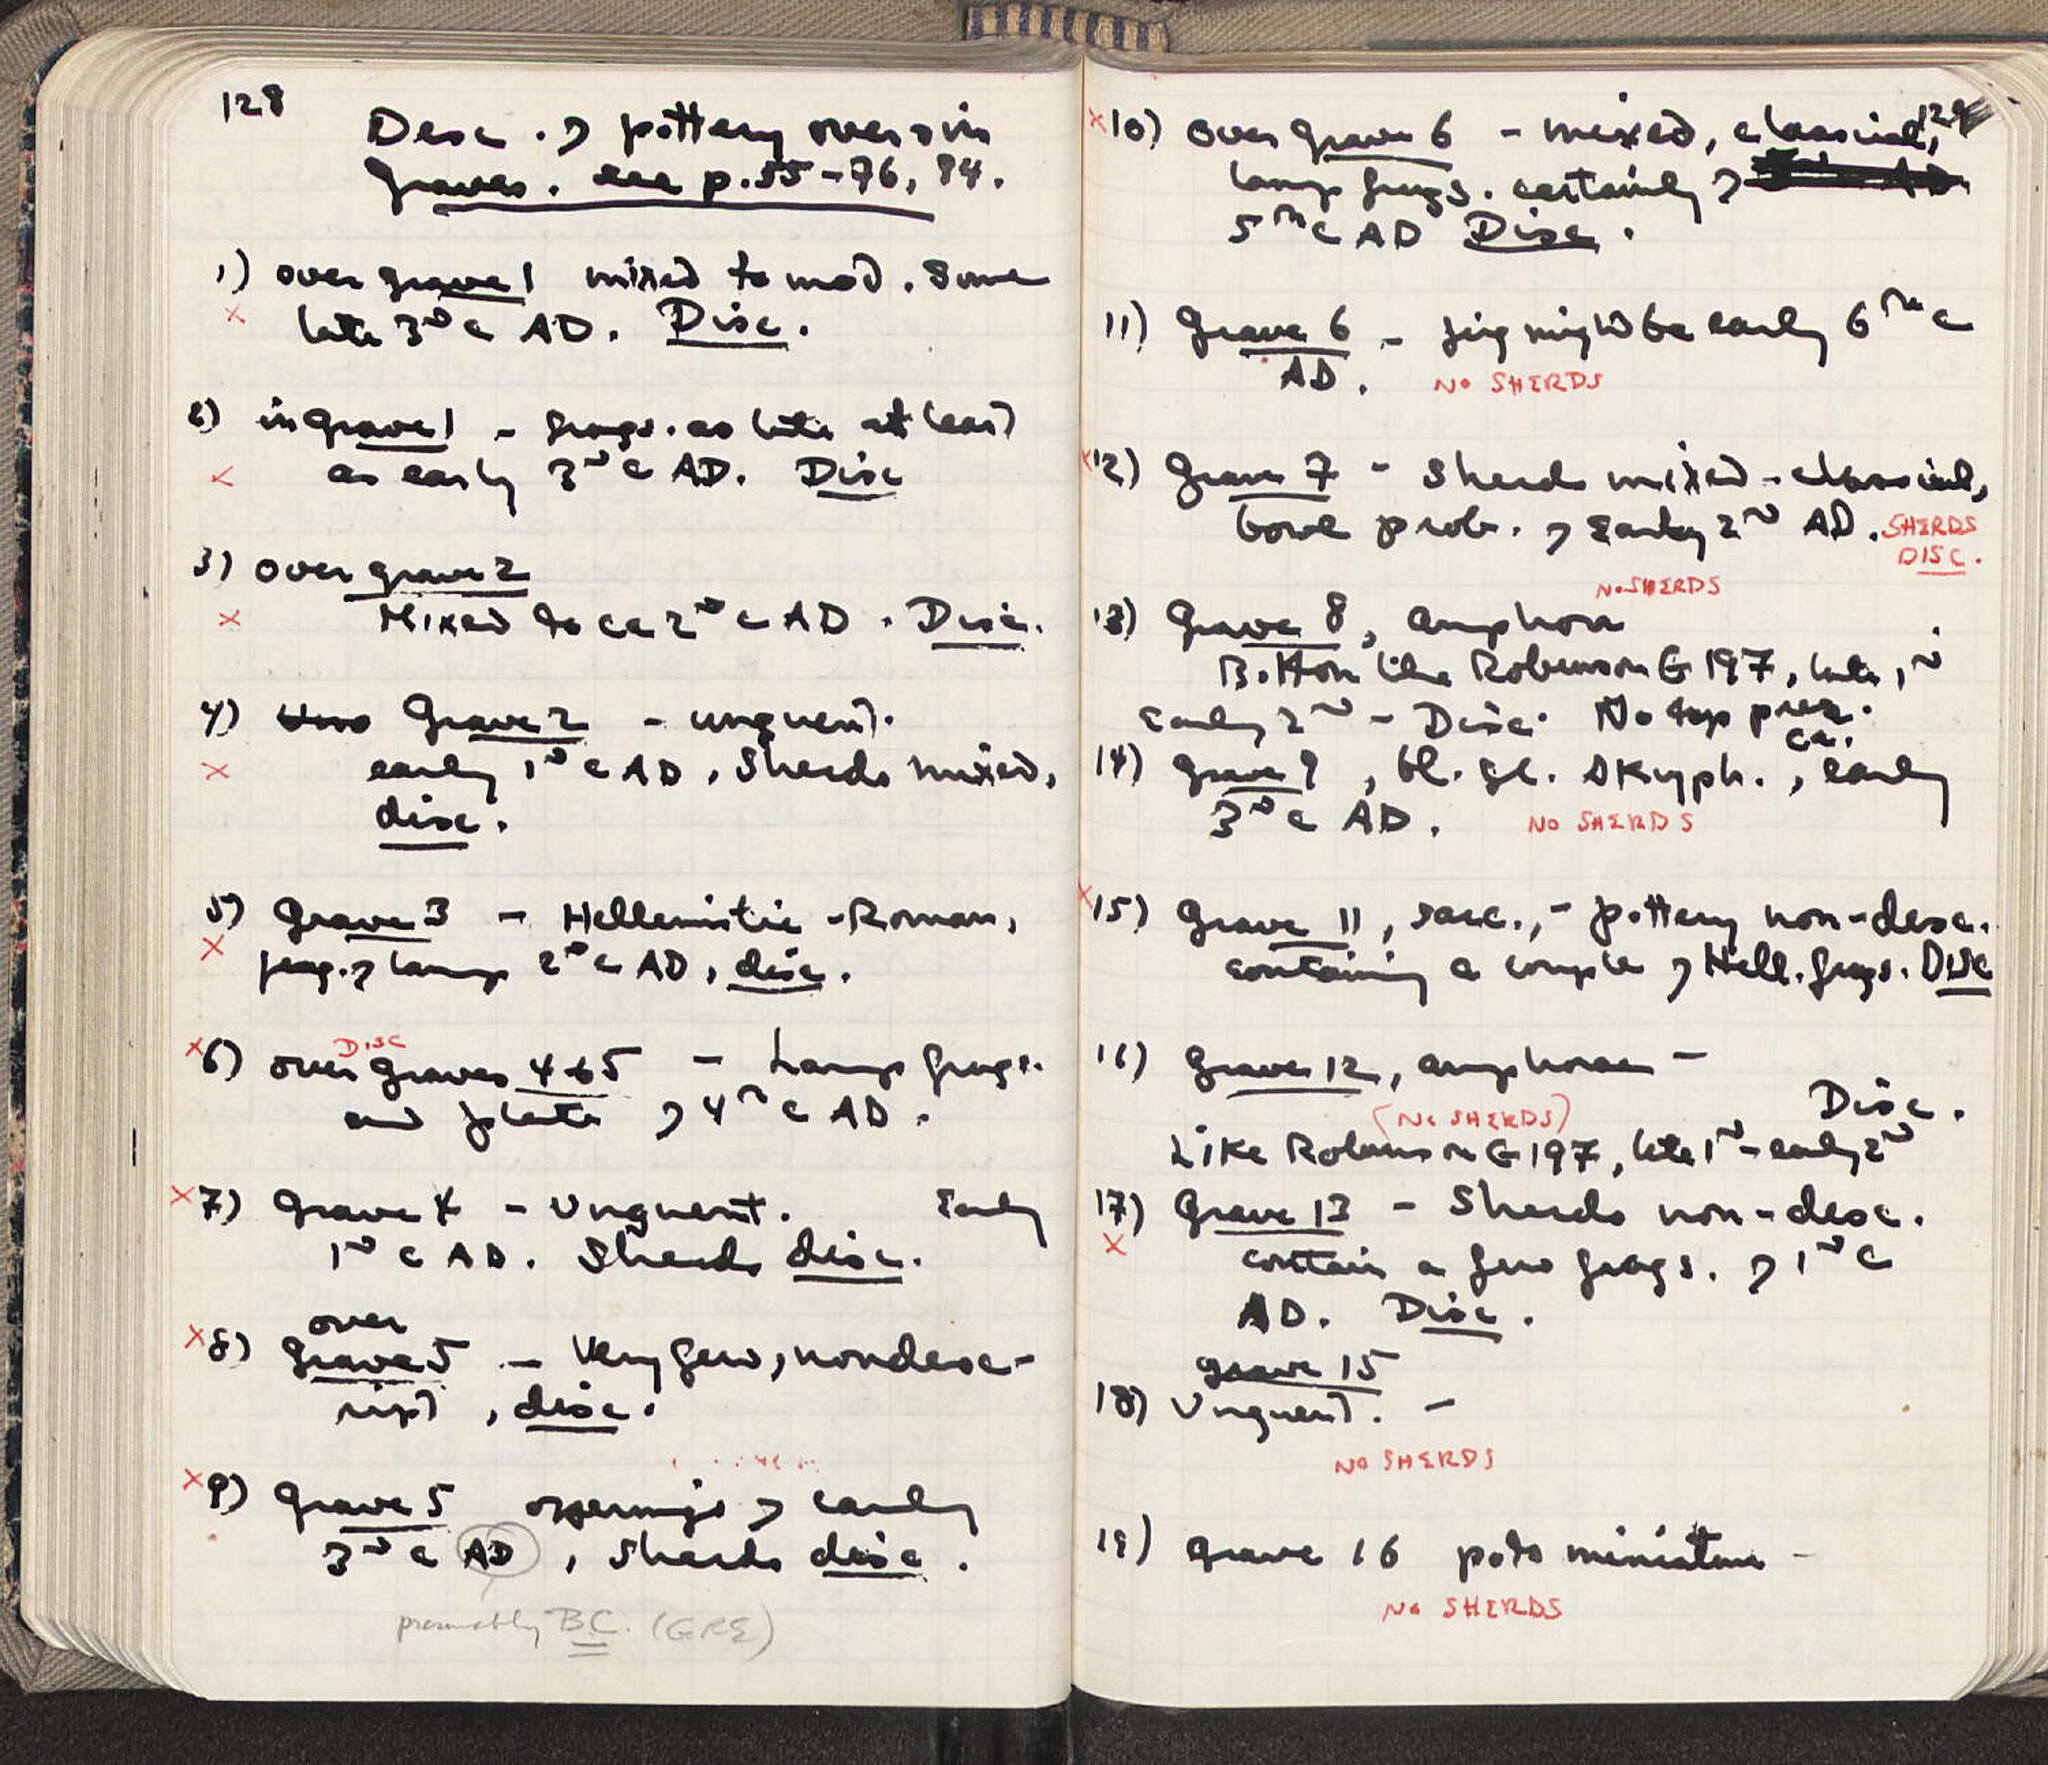 128
Desc. of pottery over & in
graves. see p. 55-76, 84.
1) over grave 1 mixed to mod. Some
late 3rd c AD. Disc.
2) in grave 1 - frags. as late at least
as early 3rd c AD. Disc
3) over grave 2
Mixed to ca 2nd c AD. Disc.
4) Grave 2 - unguent.
early 1st c AD, Sherds mixed,
disc.
5) Grave 3 - Hellenistic-Roman,
frag. of lamp 2nd c AD, disc.
DISC
6) over graves 4 & 5 - Lamp frags.
and plate of 4th c AD.
7) Grave 4 - Unguent. Early
1st c AD. Sherds disc.
over
8) grave 5 - Very few, nondesc-
ript, disc.
9) grave 5 offerings of early
3rd c AD, Sherds disc.
presumably B.C. (GRE)
129
10) over grave 6 - mixed, classical,
lamp frags. certainly of
5th c AD Disc.
11) Grave 6 - jug might be early 6th c
AD. NO SHERDS
12) Grave 7 - Sherds mixed - classical,
bowl prob. of Early 2nd AD. SHERDS
DISC.
NO SHERDS
13) Grave 8, amphora
Bottom like Robinson G 197, late 1st
Early 2nd - Disc. No top pres.
ca.
14) grave 9, bl. gl. skyph., early
3rd c AD. NO SHERDS
15) Grave 11, sarc., - pottery non-desc.
containing a couple of Hell. frags. Disc
16) Grave 12, amphorae -
Disc.
(NO SHERDS)
Like Robinson G 197, late 1st - early 2nd
17) Grave 13 - Sherds non-desc.
contain a few frags. of 1st c
AD. Disc.
grave 15
18) Unguent. -
NO SHERDS
19) grave 16 pots miniature -
NO SHERDS